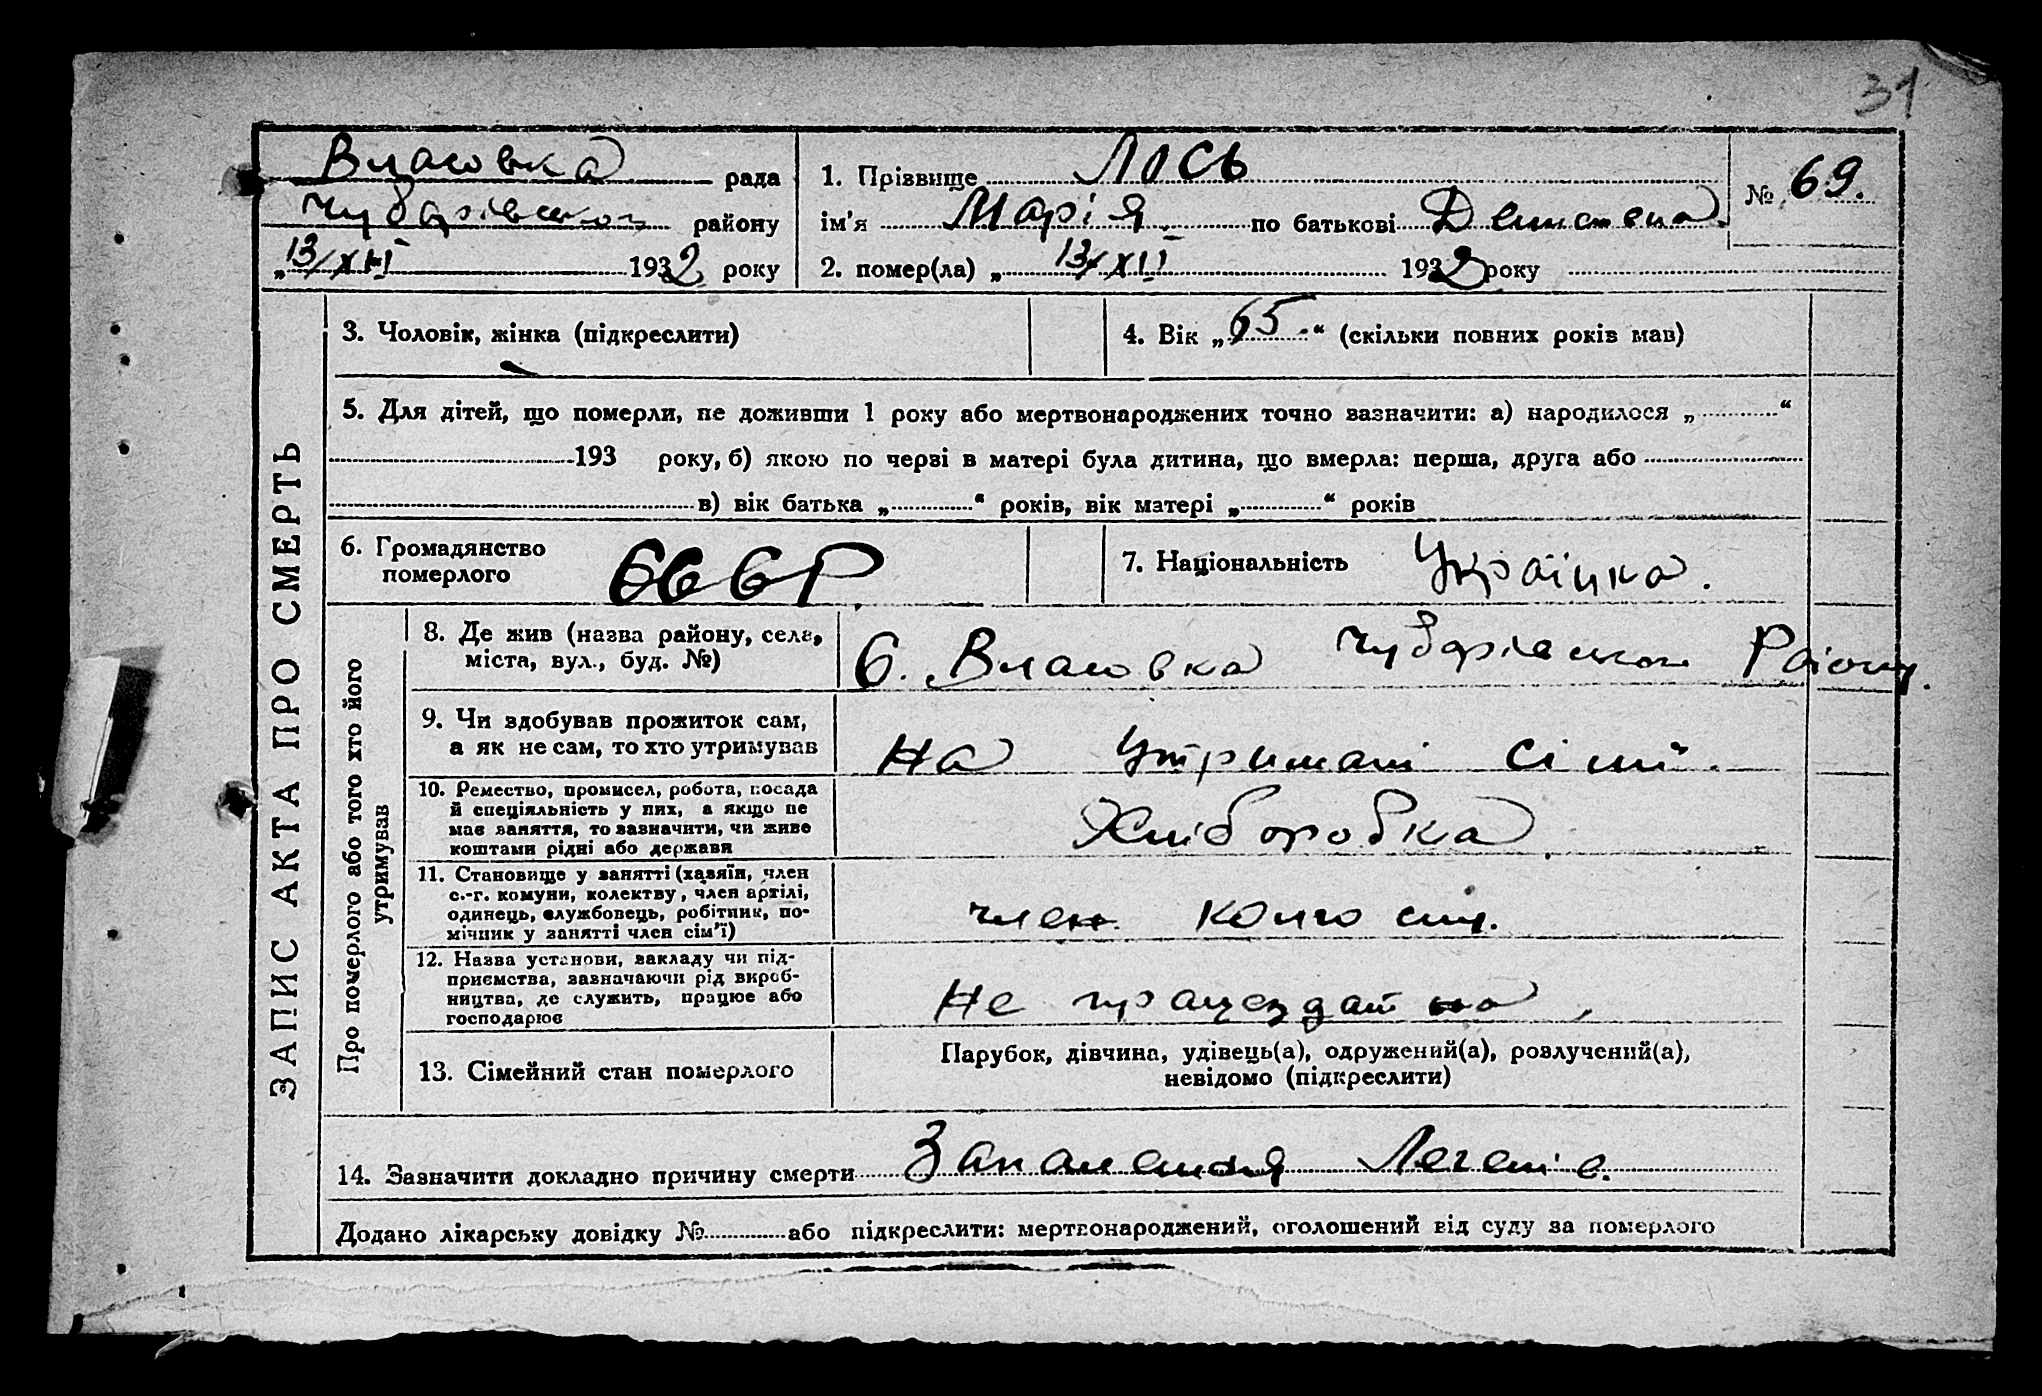 31
Власовка рада
Чубарівського району
„13/XII 1932 року
1. Прізвище Лось
ім'я Марія по батькові
№ 69.
2. помер(ла) „13/XII 1932 року
ЗАПИС АКТА ПРО СМЕРТЬ
3. Чоловік, жінка (підкреслити)
4. Вік „65" (скільки повних років мав)
5. Для дітей, що померли, не доживши 1 року або мертвонароджених точно зазначити: а) народилося „ "
193 року, б) якою по черзі в матері була дитина, що вмерла: перша, друга або
в) вік батька „ " років, вік матері „ " років
6. Громадянство
померлого
СССР
7. Національність Українка.
Про померлого або того хто його
утримував
8. Де жив (назва району, села,
міста, вул., буд. №)
С. Власовка Чубарівського Району.
9. Чи здобував прожиток сам,
а як не сам, то хто утримував
На Утримані сімї.
10. Ремество, промисел, робота, посада
й спеціяльність у них, а якщо не
має заняття, то зазначити, чи живе
коштами рідні або держави
Хліборобка.
11. Становище у занятті (хазяїн, член
с.-г. комуни, колективу, член артілі,
одинець, службовець, робітник, по-
мічник у занятті член сім'ї)
член колгоспу.
12. Назва установи, закладу чи під-
приємства, зазначаючи рід вироб-
ництва, де служить, працює або
господарює
Не працездатна,
13. Сімейний стан померлого
Парубок, дівчина, удівець(а), одружений(а), розлучений(а),
невідомо (підкреслити)
14. Зазначити докладно причину смерти Запалення Легенів.
Додано лікарську довідку № або підкреслити: мертвонароджений, оголошений від суду за померлого